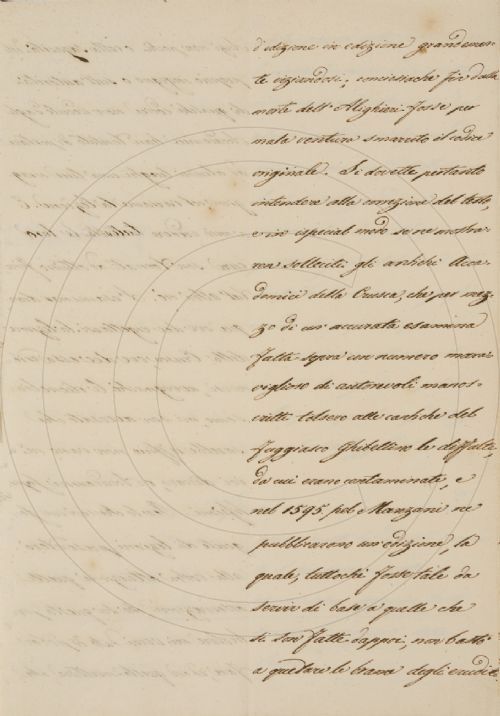 d'edizione in edizione grandemen-
te viziandosi; conciossiachè fin dalla
morte dell'Alighieri fosse per
mala ventura smarrito il codice
originale. Si dovette pertanto
intendere alla correzione del testo,
e in especial modo se ne mostra-
rea solleciti gli antichi Acca-
demici della Crusca, che per mez-
zo di un'accurata esamina
fatta sopra un numero mara-
viglioso di autorevoli manos-
critti tolsero alle cantiche del
fuggiasco Ghibellino le diffalte,
da cui erano contaminate, e
nel 1595, pel Manzani ne
pubblicarono un'edizione, la
quale, tuttochè fosse tale da
servir di base a quelle che
si son fatte dappoi, non bastò
a quetare le brame degli erudit